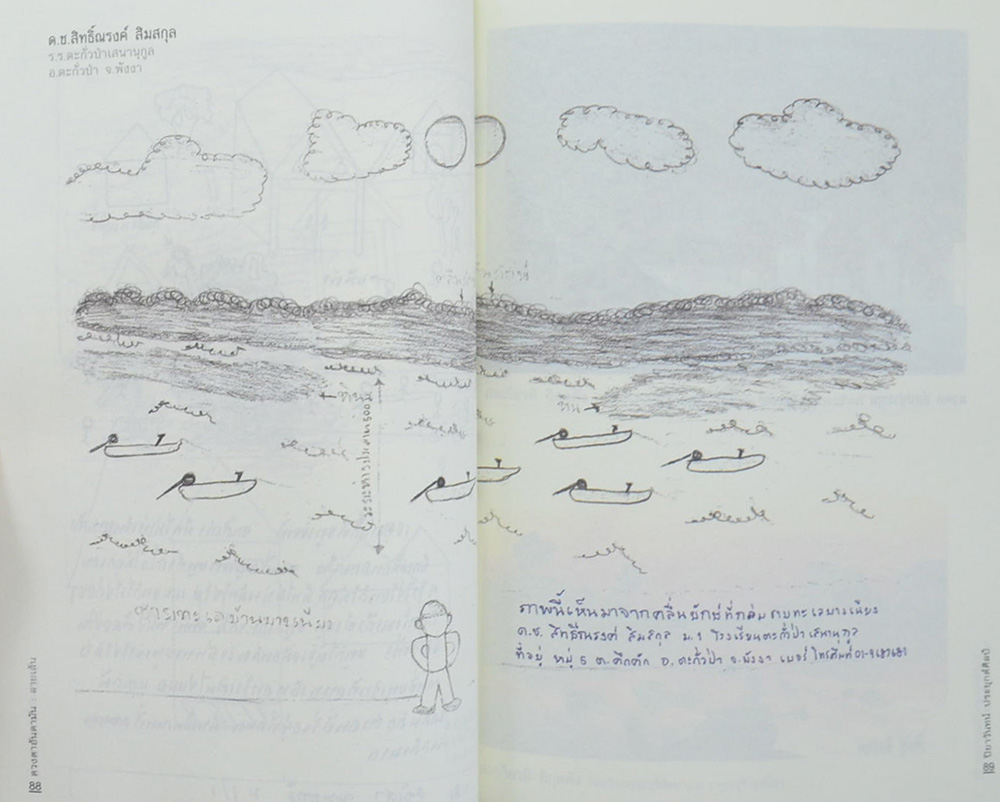 ด.ช.สิทธิ์ณรงค์ สิมสกุล
ร.ร.ตะกั่วป่าเสนานุกูล
อ.ตะกั่วป่า จ.พังงา
หิน
หิน
ระยะห่างประมาณ 500 ม
ชายทะเลบ้านบางเนียง
ภาพนี้เห็นมาจากคลื่นยักษ์ที่ถล่มชายทะเลบางเนียง
ด.ช. สิทธิ์ณรงค์ สิมสกุล ม.1 โรงเรียนตะกั่วป่าเสนานุกูล
ที่อยู่ หมู่ 5 ต.คึกคัก อ.ตะกั่วป่า จ.พังงา เบอร์โทรศัพท์
88 ดวงตาอันดามัน : ฉายเส้น
ปิยาวันทน์ ประยุกต์ศิลป์